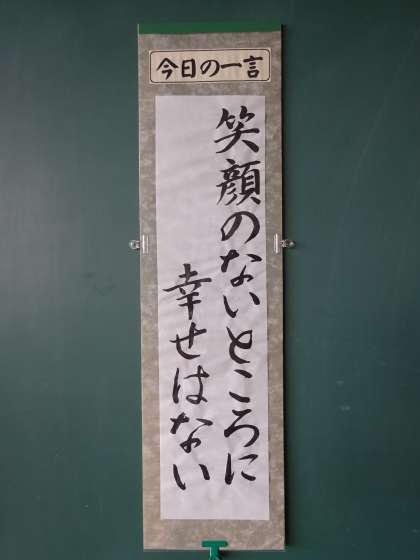 今日の一言
笑顔のないところに
幸せはない